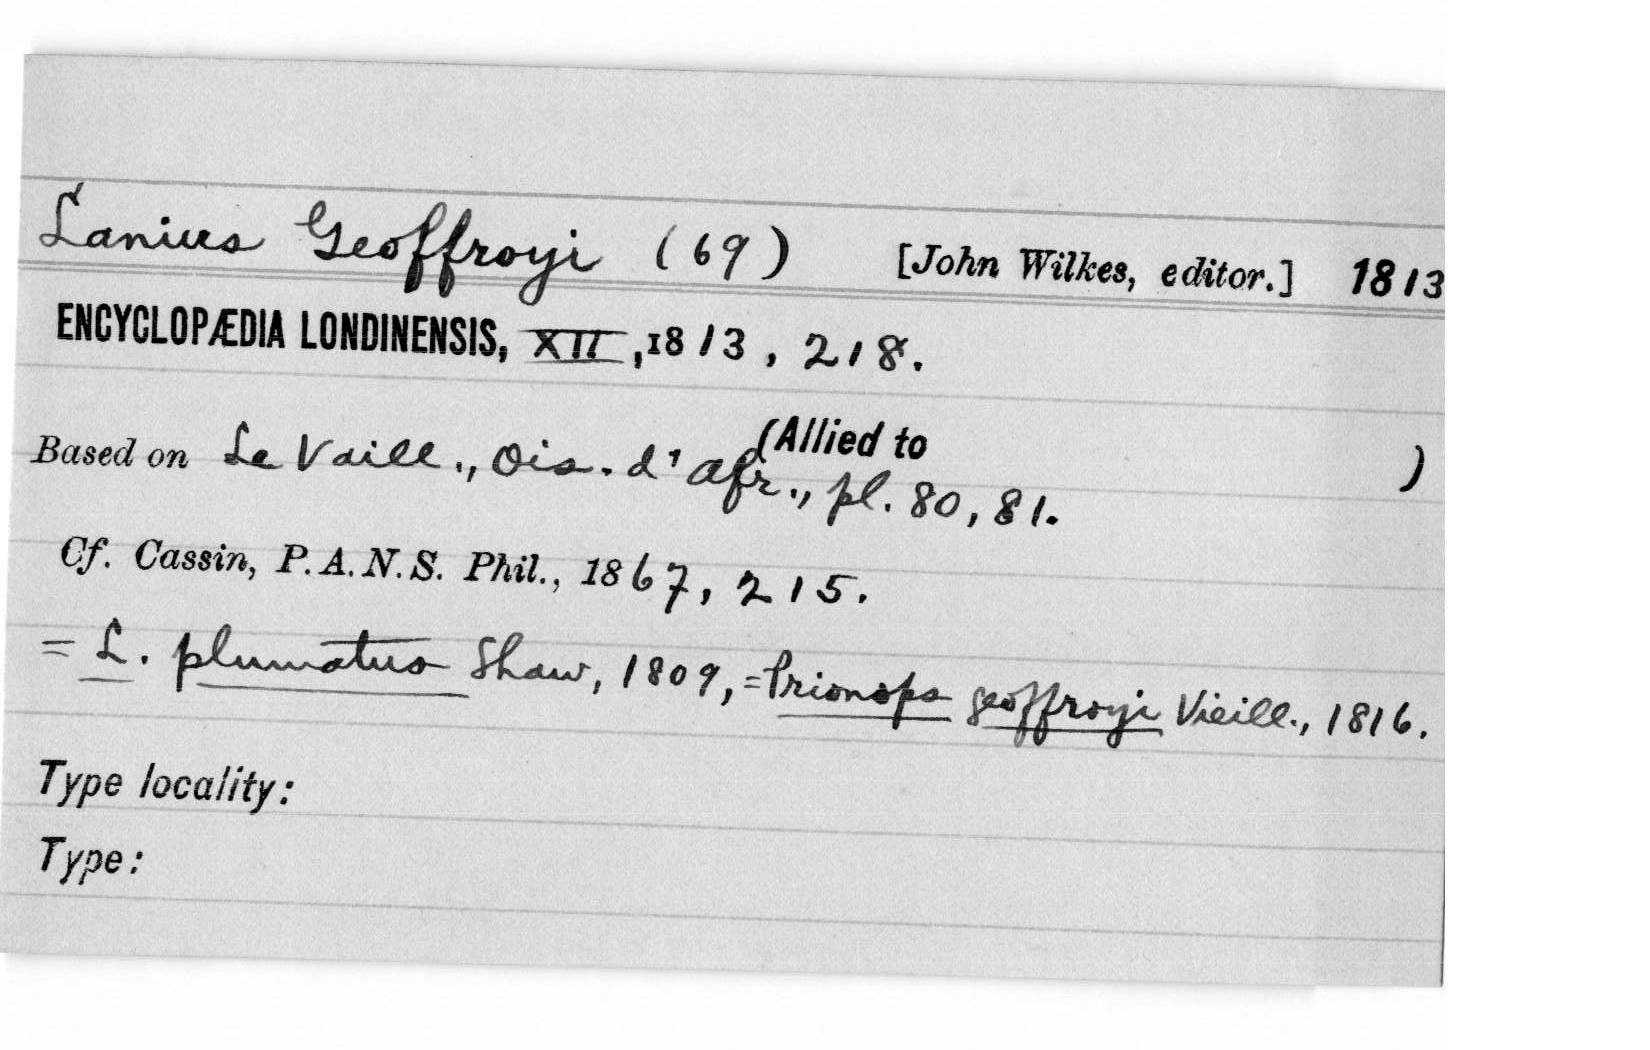 Lanius Geoffroyi (69) [John Wilkes, editor.] 1813
ENCYCLOPÆDIA LONDINENSIS, XII, 1813, 218.
(Allied to )
Based on Le Vaill., Ois. d'Afr., pl. 80, 81.
Cf. Cassin, P.A.N.S. Phil., 1867, 215.
= L. plumatus Shaw, 1809, = Prionops geoffroyi Vieill., 1816.
Type locality:
Type: